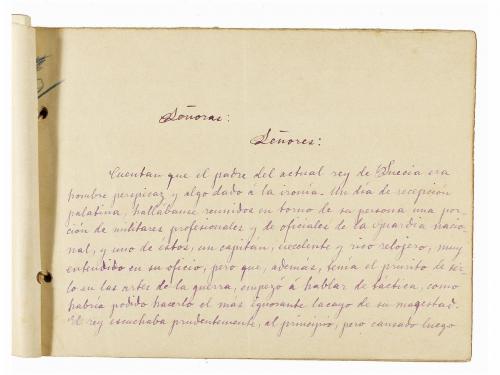 Señoras:
Señores:
Cuentan que el padre del actual rey de Suecia era
hombre perspicaz y algo dado á la ironía. Un día de recepción
palatina, hallábanse reunidos en torno de su persona una por-
ción de militares profesionales y de oficiales de la guardia nacio-
nal, y uno de éstos, un capitán, excelente y rico relojero, muy
entendido en su oficio, pero que, además, tenía el prurito de ser-
lo en las artes de la guerra, empezó á hablar de táctica, como
habría podido hacerlo el más ignorante lacayo de su magestad.
El rey escuchaba prudentemente, al principio, pero cansado luego